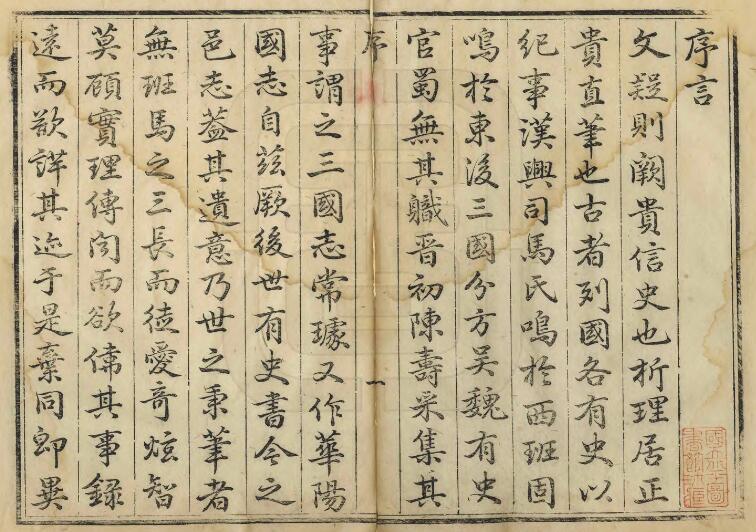 序言
文疑則闕貴信史也析理居正
貴直筆也古者列國各有史以
紀事漢興司馬氏鳴於西班固
鳴於東後三國分方吴魏有史
官蜀無其職晉初陳壽采集其
序
一
事謂之三國志常璩又作華陽
國志自茲厥後世有史書今之
邑志蓋其遺意乃世之秉筆者
無班馬之三長而徒愛奇炫智
莫顧實理傳聞而欲偹其事錄
遠而欲詳其迹于是棄同即異